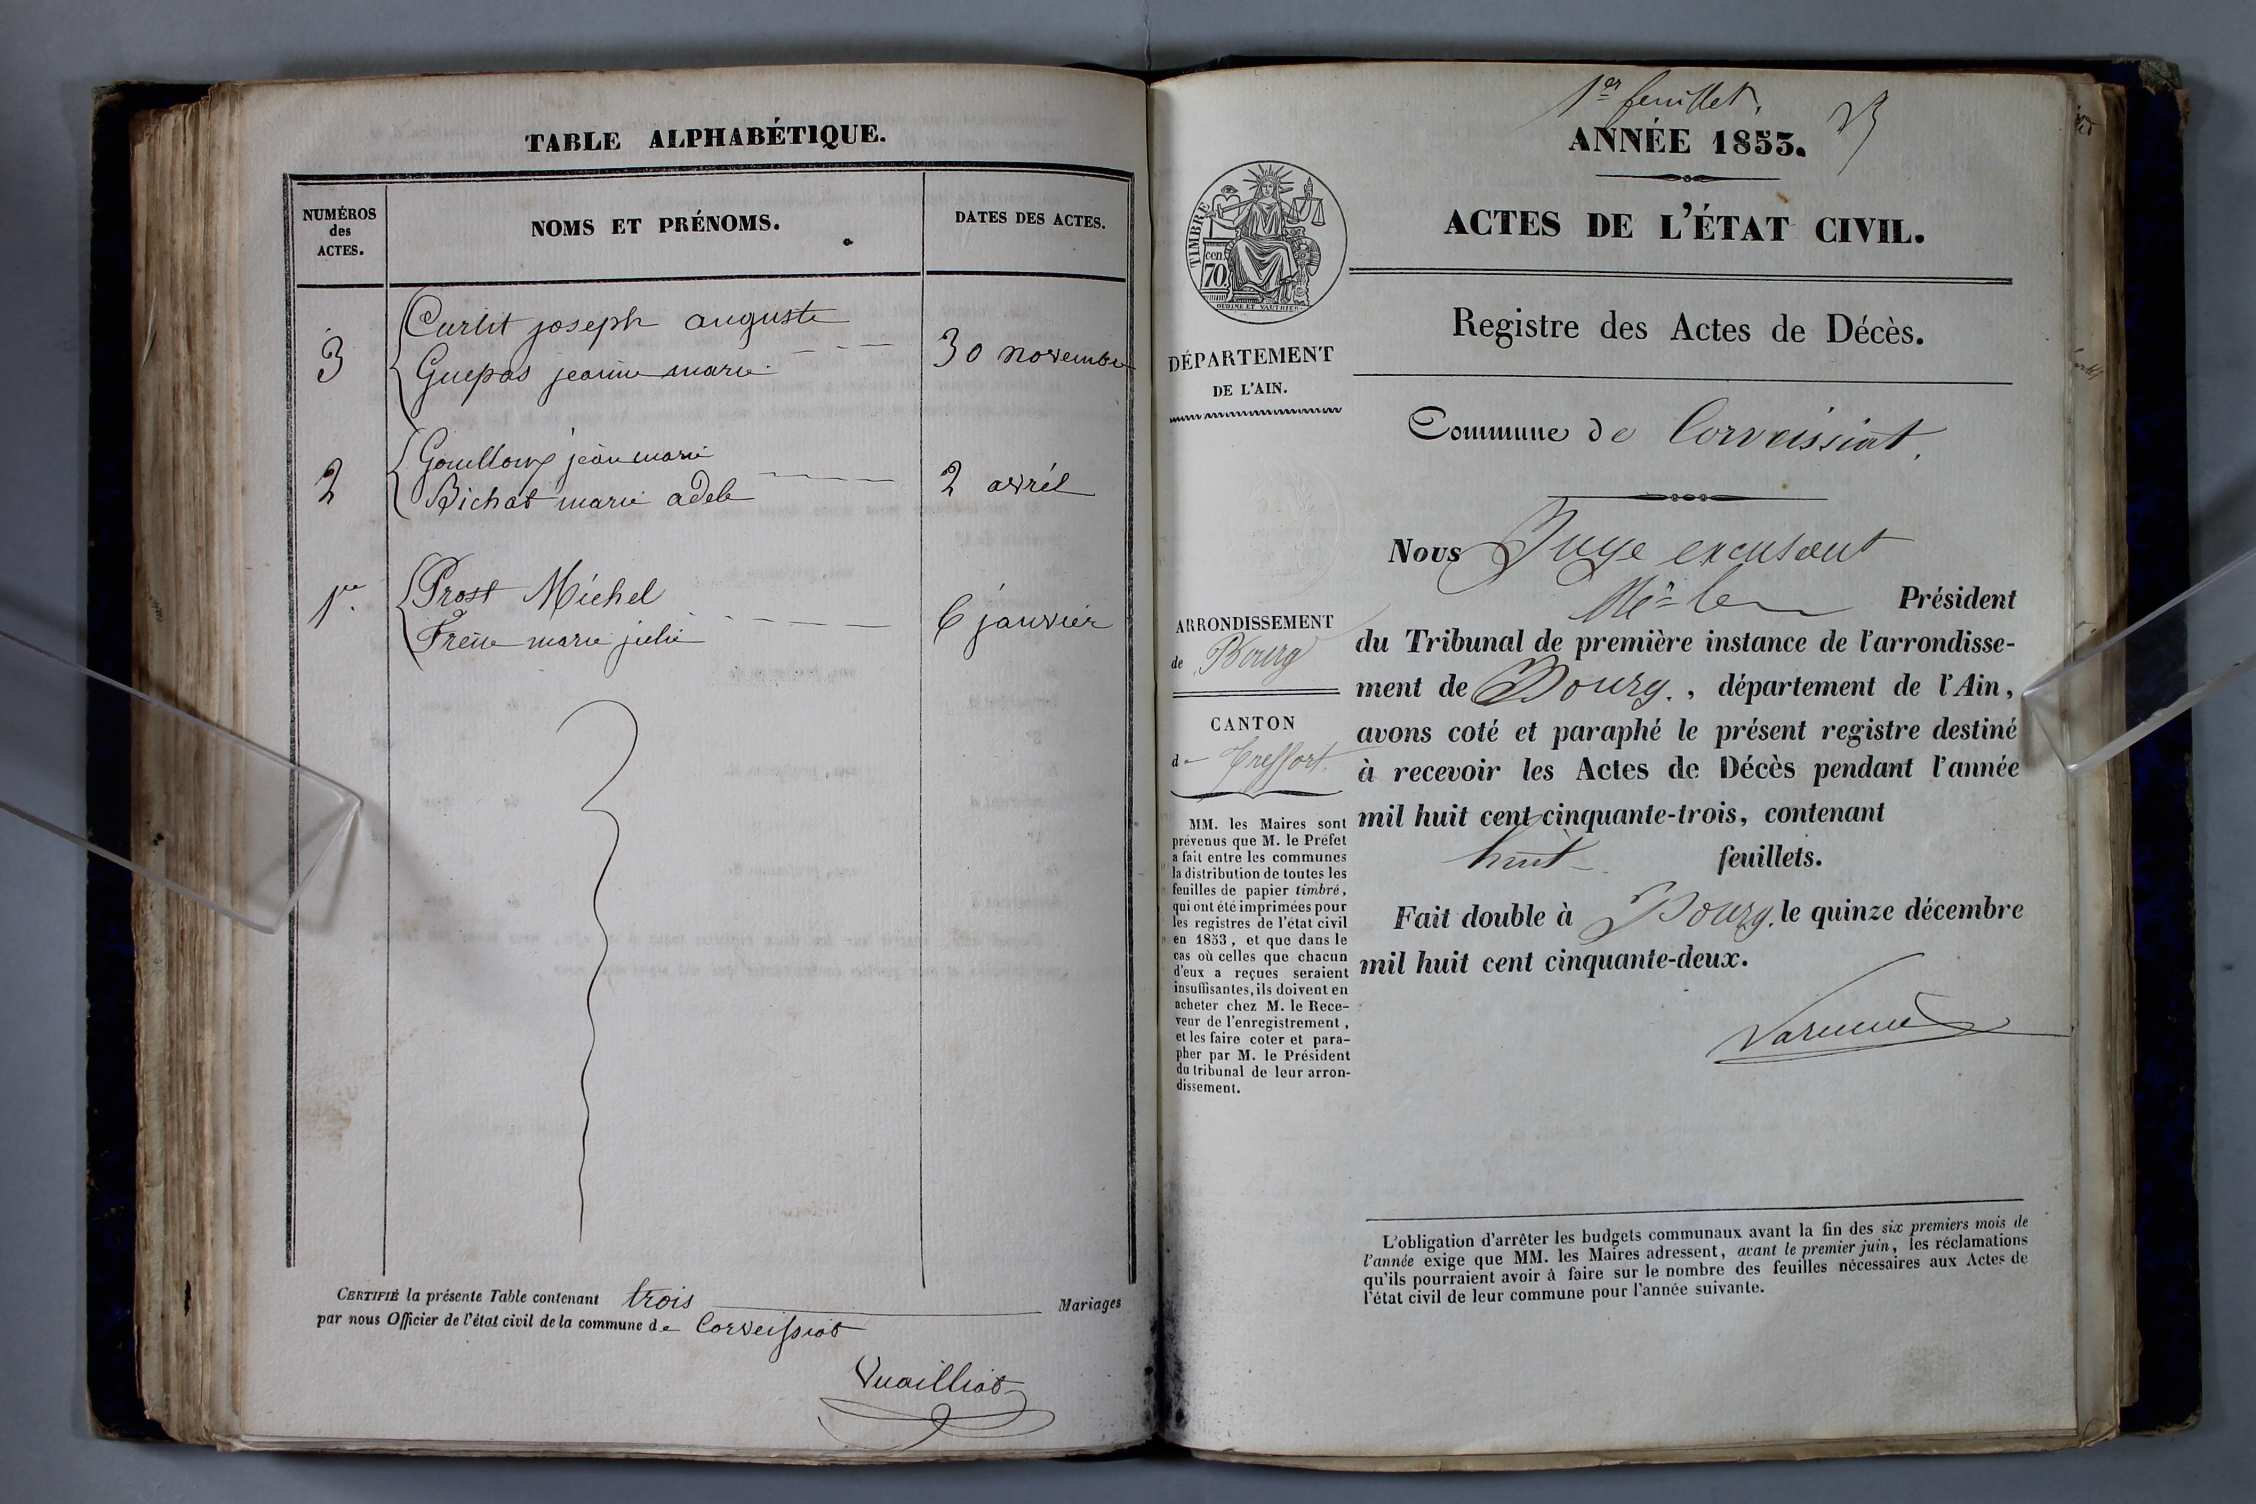 TABLE ALPHABÉTIQUE.
NUMÉROS
des
ACTES.
NOMS ET PRÉNOMS.
DATES DES ACTES.
3
Curlit joseph auguste
Guepas jeanne marie
30 novembre
2
Goulloux jean marie
Bichat marie adele
2 avril
1er
Prost Michel
marie julie
6 janvier
CERTIFIÉ la présente Table contenant trois Mariages
par nous Officier de l'état civil de la commune de Corveissiat
Vuailliat
1er feuillet.
ANNÉE 1853.
ACTES DE L'ÉTAT CIVIL.
Registre des Actes de Décès.
Commune de Corveissiat.
TIMBRE
cen.
70
OUDINE ET VAUTHIER
DÉPARTEMENT
DE L'AIN.
ARRONDISSEMENT
de Bourg
CANTON
de Treffort
MM. les Maires sont
prévenus que M. le Préfet
a fait entre les communes
la distribution de toutes les
feuilles de papier timbré,
qui ont été imprimées pour
les registres de l'état civil
en 1853, et que dans le
cas où celles que chacun
d'eux a reçues seraient
insuffisantes, ils doivent en
acheter chez M. le Rece-
veur de l'enregistrement,
et les faire coter et para-
pher par M. le Président
du tribunal de leur arron-
dissement.
Nous Juge excusant
Mr le Président
du Tribunal de première instance de l'arrondisse-
ment de Bourg., département de l'Ain,
avons coté et paraphé le présent registre destiné
à recevoir les Actes de Décès pendant l'année
mil huit cent cinquante-trois, contenant
huit feuillets.
Fait double à Bourg. le quinze décembre
mil huit cent cinquante-deux.
L'obligation d'arrêter les budgets communaux avant la fin des six premiers mois de
l'année exige que MM. les Maires adressent, avant le premier juin, les réclamations
qu'ils pourraient avoir à faire sur le nombre des feuilles nécessaires aux Actes de
l'état civil de leur commune pour l'année suivante.